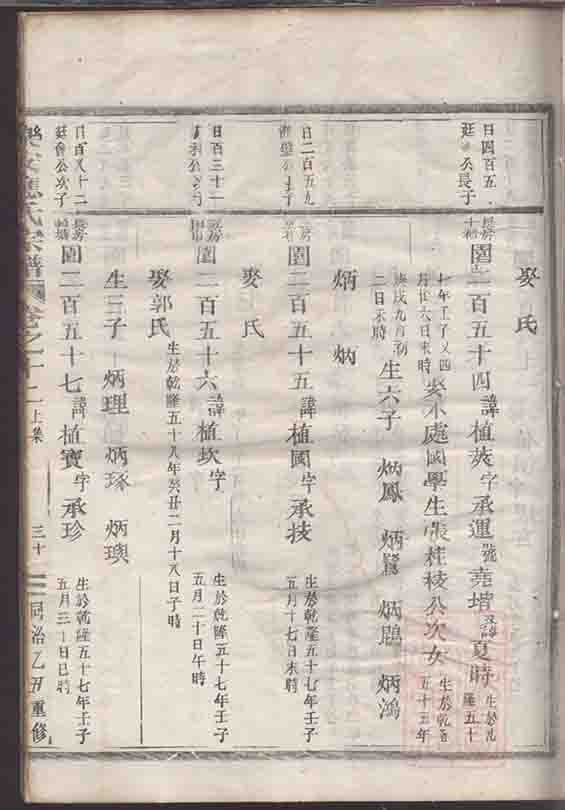 娶 氏
日四百五
廷 公長子
園二百五十四 諱 植莢 字 承運 號 堯增 夏時 生於乾隆五十
七年壬子又四月廿六日未時 娶 處國學生張桂稜公次女 生於乾隆五十五年
庚戌九月初二日未時 生六子 炳鳳 炳鷺 炳鵾 炳鴻
炳 炳
日二百五九
園二百五十五 諱 植國 字 承技 生於乾隆五十七年壬子五月十七日未時
娶 氏
日百三十一
園二百五十六 諱 植坎 字 生於乾隆五十七年壬子五月二十日午時
娶郭氏 生於乾隆五十八年癸丑二月十八日子時
生三子 炳理 炳琢 炳璵
日百八十二
廷 公次子
園二百五十七 諱 植寶 字 承珍 生於乾隆五十七年壬子五月三十日巳時
應氏宗譜 卷之十二 上集 三十 同治乙丑重修